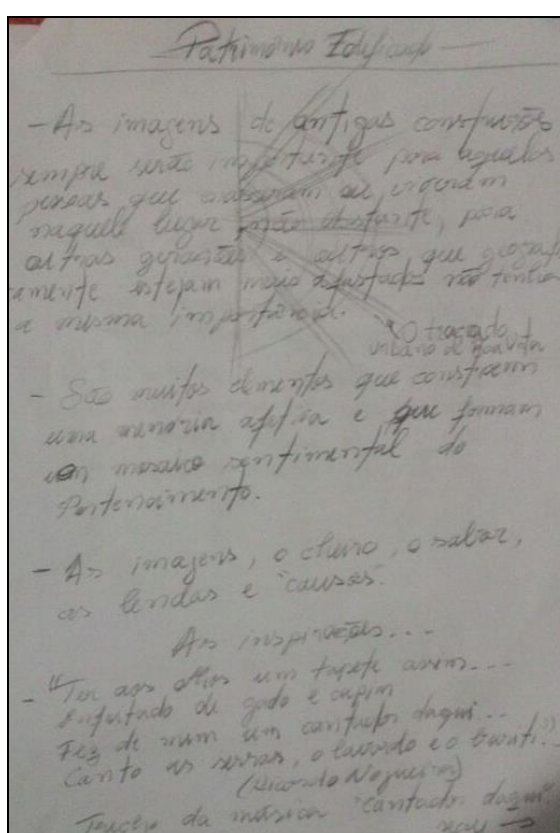 Patrimônio Edificado
- As imagens de antigas construções
sempre serão importante para aquelas
pessoas que nasceram ou viveram
naquele lugar não obstante, para
outras gerações e outros que geograf
camente estejam mais afastados não tenha
a mesma importância.
O traçado
urbano de Boa Vista
- São muitos elementos que constroem
uma memória afetiva e que formam
um mosaico sentimental do
Pertencimento.
- As imagens, o cheiro, o sabor,
as lendas e "causos".
As inspirações...
- "Ter aos olhos um tapete assim...
Enfeitado de gado e capim
Fez de mim um cantador daqui...
Canto as serras, o lavrado e o buriti..."
(Ricardo Nogueira)
Trecho da música "cantador daqui"